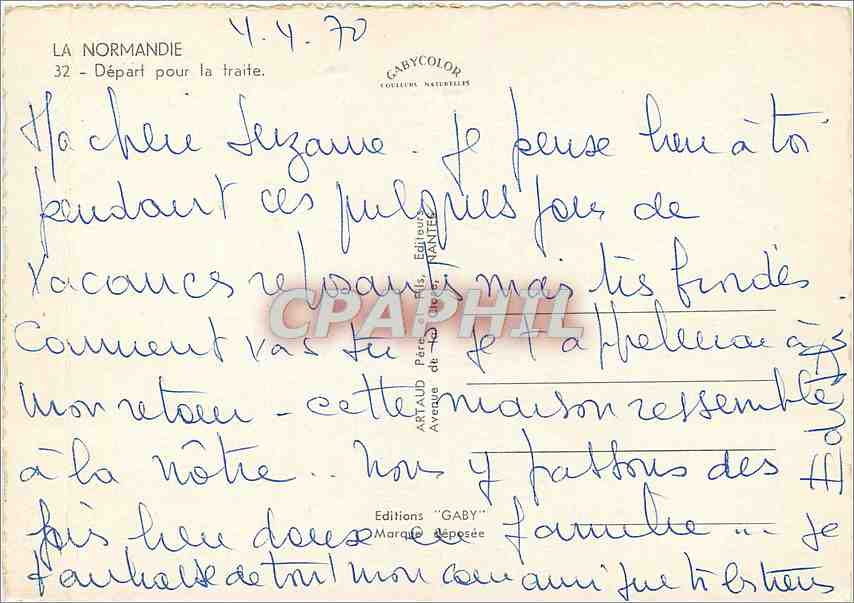 4.4.70
LA NORMANDIE
32 - Départ pour la traite.
GABYCOLOR
COULEURS NATURELLES
Ma chère Suzanne. Je pense bien à toi
pendant ces quelques jours de
vacances reposants mais très froides
Comment vas tu? Je t'appellerai à
mon retour - cette maison ressemble
à la nôtre.. nous y passons des
jours bien doux en famille... Je
t'embrasse de tout mon coeur ainsi que
ARTAUD Père et Fils, Editeurs
Avenue de la Gare, NANTES
Editions "GABY"
Marque déposée
CPAPHIL